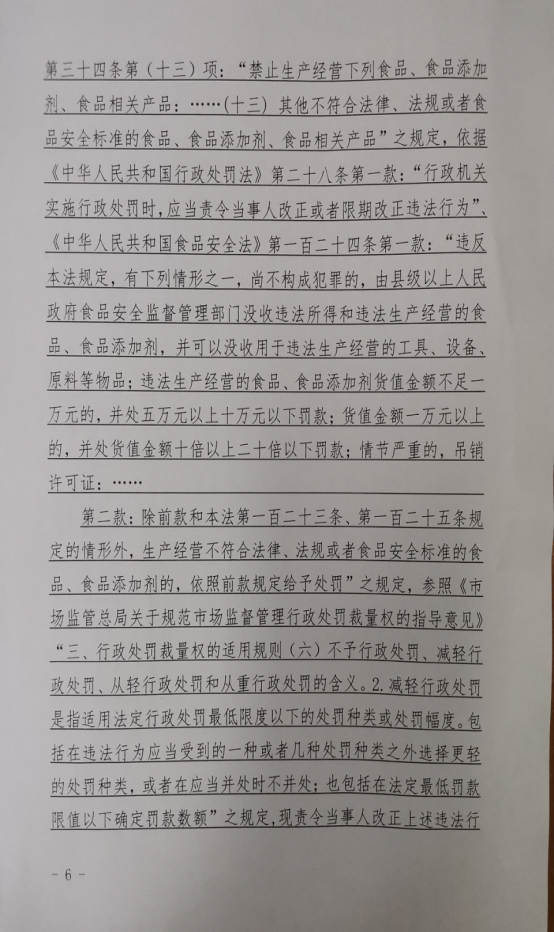 第三十四条第（十三）项：“禁止生产经营下列食品、食品添加
剂、食品相关产品：……(十三) 其他不符合法律、法规或者食
品安全标准的食品、食品添加剂、食品相关产品”之规定，依据
《中华人民共和国行政处罚法》第二十八条第一款：“行政机关
实施行政处罚时，应当责令当事人改正或者限期改正违法行为”、
《中华人民共和国食品安全法》第一百二十四条第一款：“违反
本法规定，有下列情形之一，尚不构成犯罪的，由县级以上人民
政府食品安全监督管理部门没收违法所得和违法生产经营的食
品、食品添加剂，并可以没收用于违法生产经营的工具、设备、
原料等物品；违法生产经营的食品、食品添加剂货值金额不足一
万元的，并处五万元以上十万元以下罚款；货值金额一万元以上
的，并处货值金额十倍以上二十倍以下罚款；情节严重的，吊销
许可证：……
第二款：除前款和本法第一百二十三条、第一百二十五条规
定的情形外，生产经营不符合法律、法规或者食品安全标准的食
品、食品添加剂的，依照前款规定给予处罚”之规定，参照《市
场监管总局关于规范市场监督管理行政处罚裁量权的指导意见》
“三、行政处罚裁量权的适用规则（六）不予行政处罚、减轻行
政处罚、从轻行政处罚和从重行政处罚的含义。2.减轻行政处罚
是指适用法定行政处罚最低限度以下的处罚种类或处罚幅度。包
括在违法行为应当受到的一种或者几种处罚种类之外选择更轻
的处罚种类，或者在应当并处时不并处；也包括在法定最低罚款
限值以下确定罚款数额”之规定,现责令当事人改正上述违法行
- 6 -